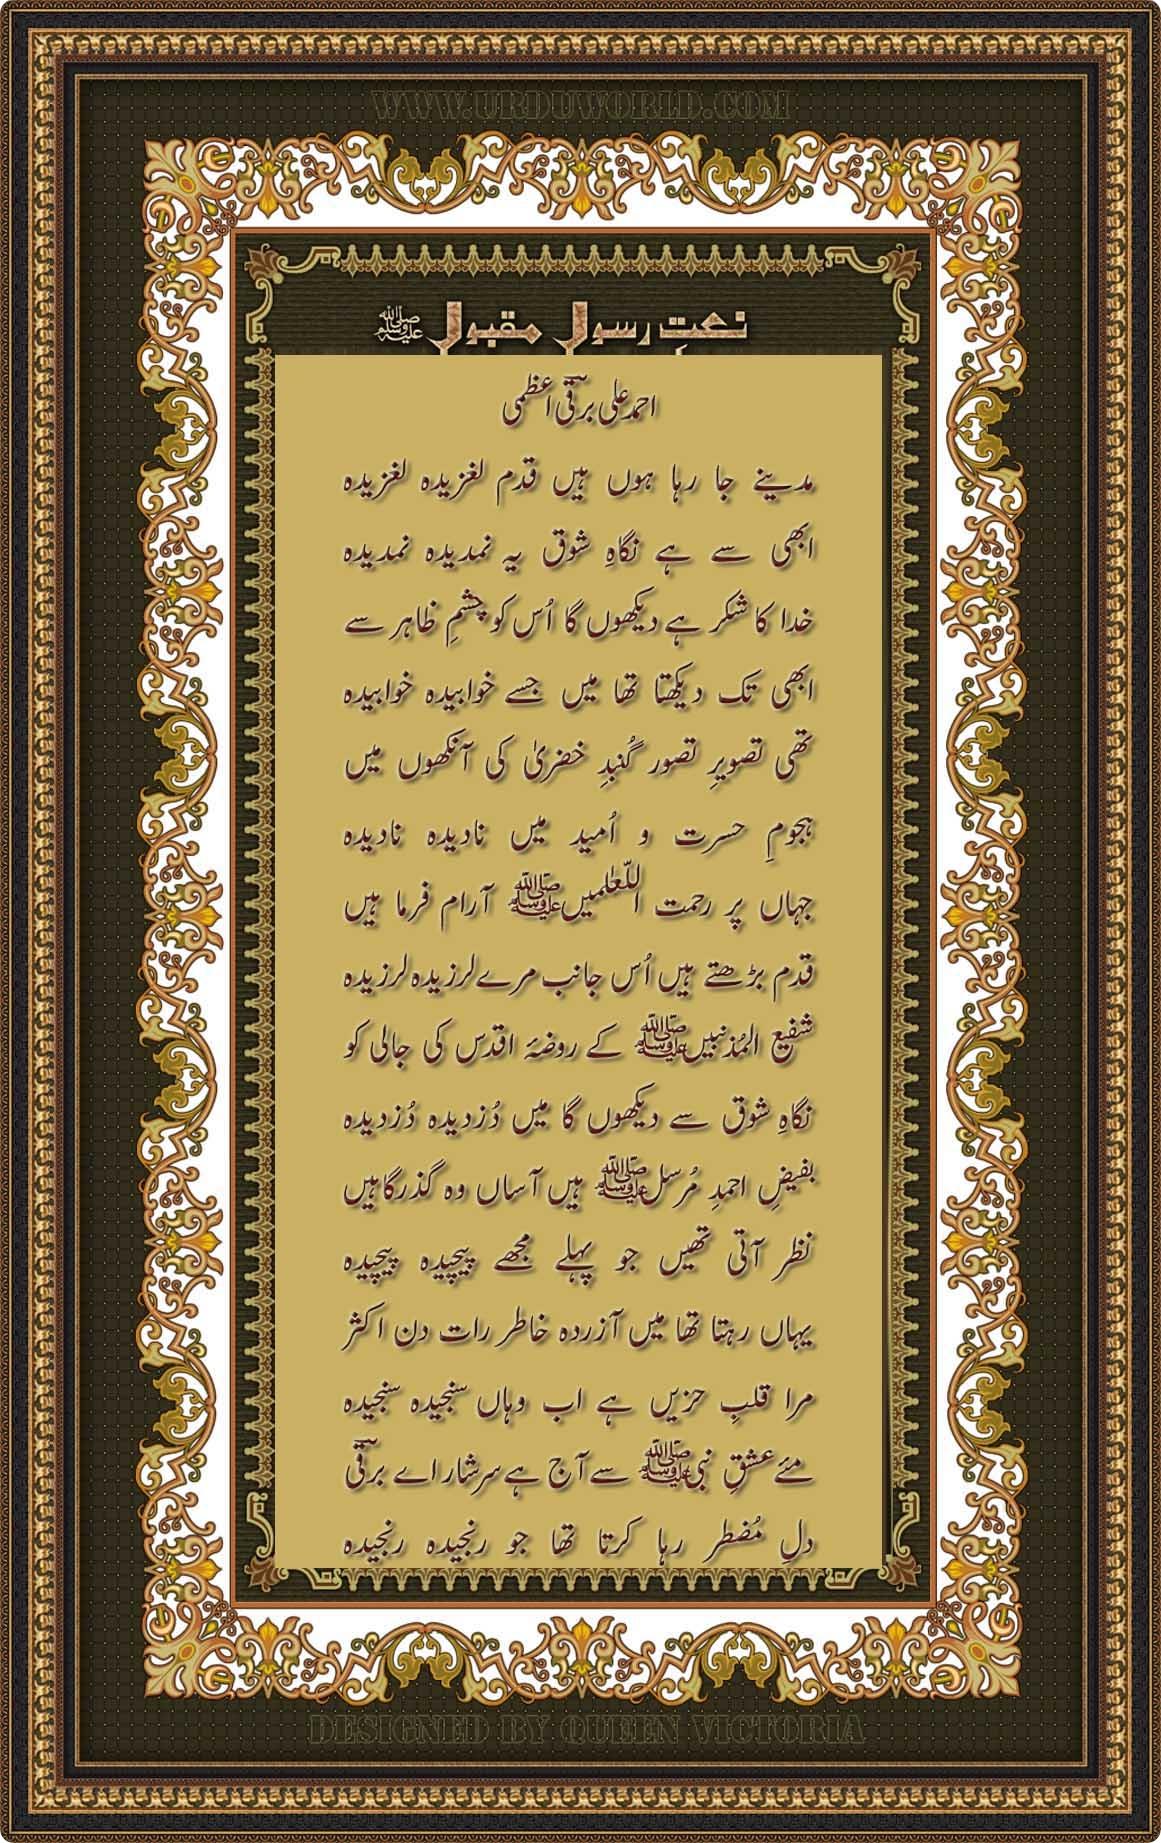 WWW.URDUWORLD.COM
نعتِ رسولِ مقبول ﷺ
احمد علی برقؔی اعظمی
مدینے جا رہا ہوں ہیں قدم لغزیدہ لغزیدہ
ابھی سے ہے نگاہِ شوق یہ نمدیدہ نمدیدہ
خدا کا شکر ہے دیکھوں گا اُس کو چشمِ ظاہر سے
ابھی تک دیکھتا تھا میں جسے خوابیدہ خوابیدہ
تھی تصویرِ تصور گُنبدِ خضریٰ کی آنکھوں میں
ہجومِ حسرت و اُمید میں نادیدہ نادیدہ
جہاں پر رحمت اللّعٰلمیںﷺ آرام فرما ہیں
قدم بڑھتے ہیں اُس جانب مرے لرزیدہ لرزیدہ
شفیع المُذنبیںﷺ کے روضۂ اقدس کی جالی کو
نگاہِ شوق سے دیکھوں گا میں دُزدیدہ دُزدیدہ
بفیضِ احمدِ مُرسلﷺ ہیں آساں وہ گذرگاہیں
نظر آتی تھیں جو پہلے مجھے پیچیدہ پیچیدہ
یہاں رہتا تھا میں آزردہ خاطر رات دن اکثر
مرا قلبِ حزیں ہے اب وہاں سنجیدہ سنجیدہ
مئے عشقِ نبیﷺ سے آج ہے سرشار اے برقؔی
دلِ مُضطر رہا کرتا تھا جو رنجیدہ رنجیدہ
DESIGNED BY QUEEN VICTORIA